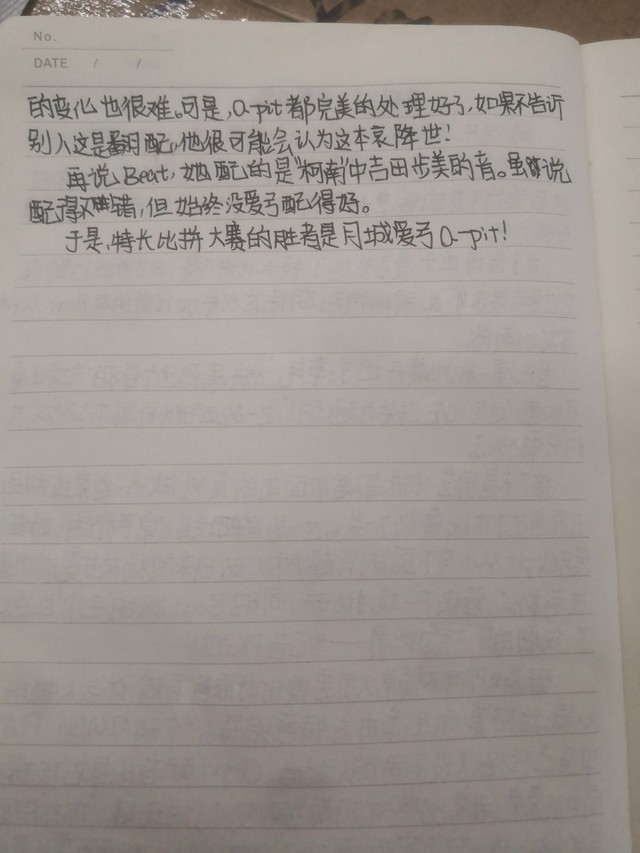 No.
DATE / /
的变化也很难。可是，a-pit都完美的处理好了，如果不告诉
别人这是翻配，他很可能会认为这本哀降世！
再说Beat，她配的是“柯南”中吉田步美的音。虽说
配得不错，但始终没爱弓配得好。
于是，特长比拼大赛的胜者是月城爱弓a-pit！